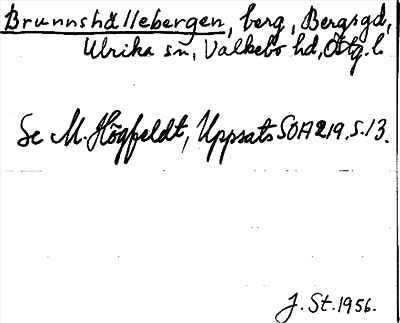 Brunnshällebergen, berg, Bergsgd,
Ulrika sn, Valkebo hd, Ötg. l.
Se M. Högfeldt, Uppsats SOA 219. s. 13.
J. St. 1956.